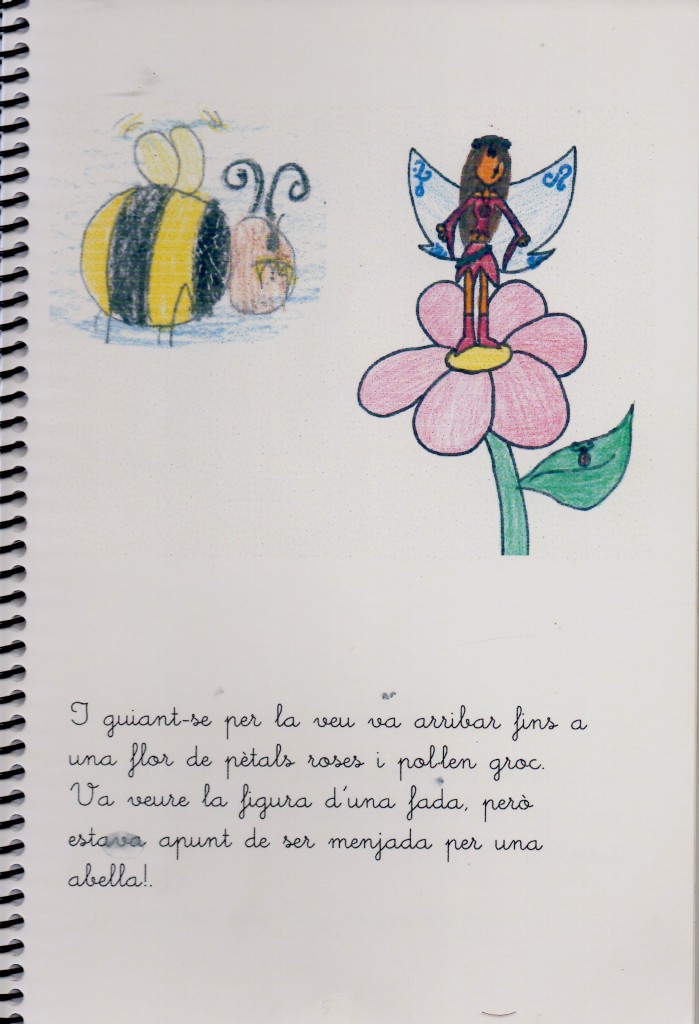 I guiant-se per la veu va arribar fins a
una flor de pètals roses i pol·len groc.
Va veure la figura d'una fada, però
estava apunt de ser menjada per una
abella!.